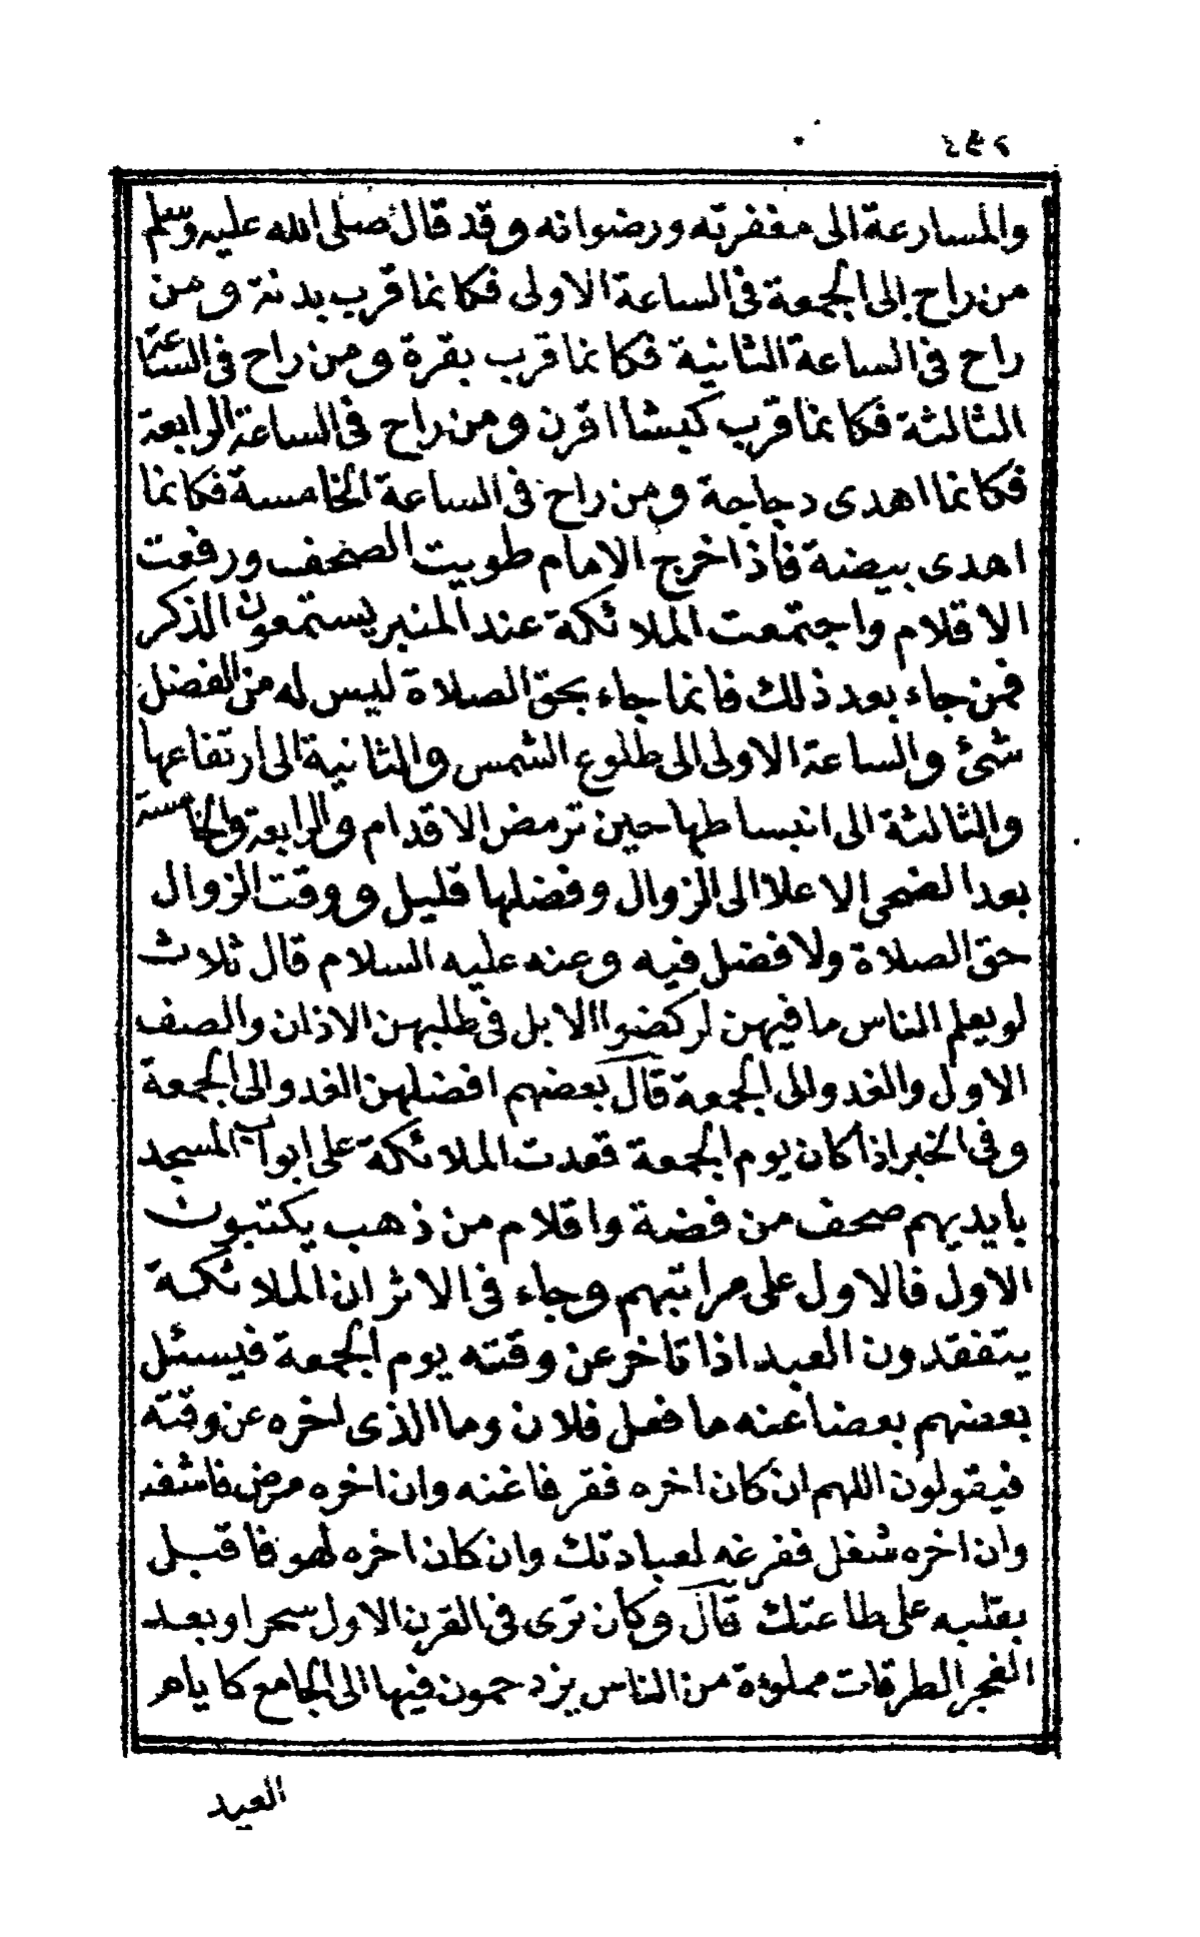 والمسارعة الى مغفرته ورضوانه وقد قال صلى الله عليه وسلم
من راح إلى الجمعة فى الساعة الاولى فكانما قرب بدنة ومن
راح فى الساعة الثانية فكانما قرب بقرة ومن راح فى الساعة
الثالثة فكانما قرب كبشا اقرن ومن راح فى الساعة الرابعة
فكانما اهدى دجاجة ومن راح فى الساعة الخامسة فكانما
اهدى بيضة فأذا خرج الامام طويت الصحف ورفعت
الاقلام واجتمعت الملائكة عند المنبر يستمعون الذكر
فمن جاء بعد ذلك فانما جاء بحق الصلاة ليس له من الفضل
شئ والساعة الاولى الى طلوع الشمس والثانية الى ارتفاعها
والثالثة الى انبساطها حين ترمض الاقدام والرابعة والخامسة
بعد الضحى الاعلا الى الزوال وفضلها قليل ووقت الزوال
حق الصلاة ولا فضل فيه وعنه عليه السلام قال ثلاث
لو يعلم الناس ما فيهن لركضوا الابل فى طلبهن الاذان والصف
الاول والغدو الى الجمعة قال بعضهم افضلهن الغدو الى الجمعة
وفى الخبر اذا كان يوم الجمعة قعدت الملائكة على ابواب المسجد
بأيديهم صحف من فضة واقلام من ذهب يكتبون
الاول فالاول على مراتبهم وجاء فى الاثر ان الملائكة
يتفقدون العبد اذا تاخر عن وقته يوم الجمعة فيسئل
بعضهم بعضا عنه ما فعل فلان وما الذى اخره عن وقته
فيقولون اللهم ان كان اخره فقر فاغنه وان اخره مرض فاشفه
وان اخره شغل ففرغه لعبادتك وان كان اخره لهو فاقبل
بقلبه على طاعتك قال وكان ترى فى القرن الاول سحرا وبعد
الفجر الطرقات مملؤة من الناس يزدحمون فيها الى الجامع كايام
العيد